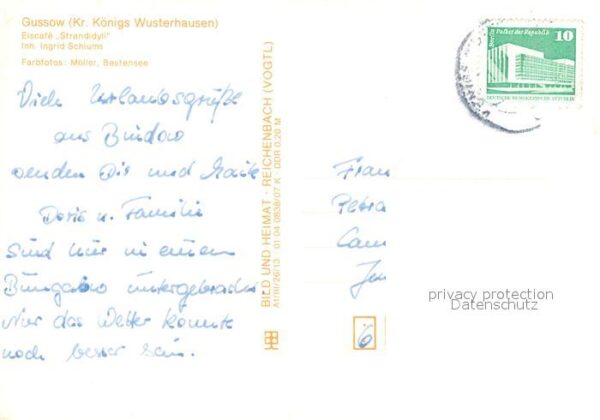 Gussow (Kr. Königs Wusterhausen)
Eiscafé „Strandidyll"
Inh. Ingrid Schlums
Farbfotos: Möller, Bestensee
Viele Urlaubsgrüße
aus Bindow
senden Dir und
Doris u. Familie
Sind hier in einem
Bungalow untergebracht
Nur das Wetter könnte
noch besser sein.
BILD UND HEIMAT · REICHENBACH (VOGTL)
A1/III/26/13 01 04 0838/07 K DDR 0,20 M
Berlin Palast der Republik
10
DEUTSCHE DEMOKRATISCHE REPUBLIK
Frau
Petra
Cam
Jen
6
privacy protection
Datenschutz